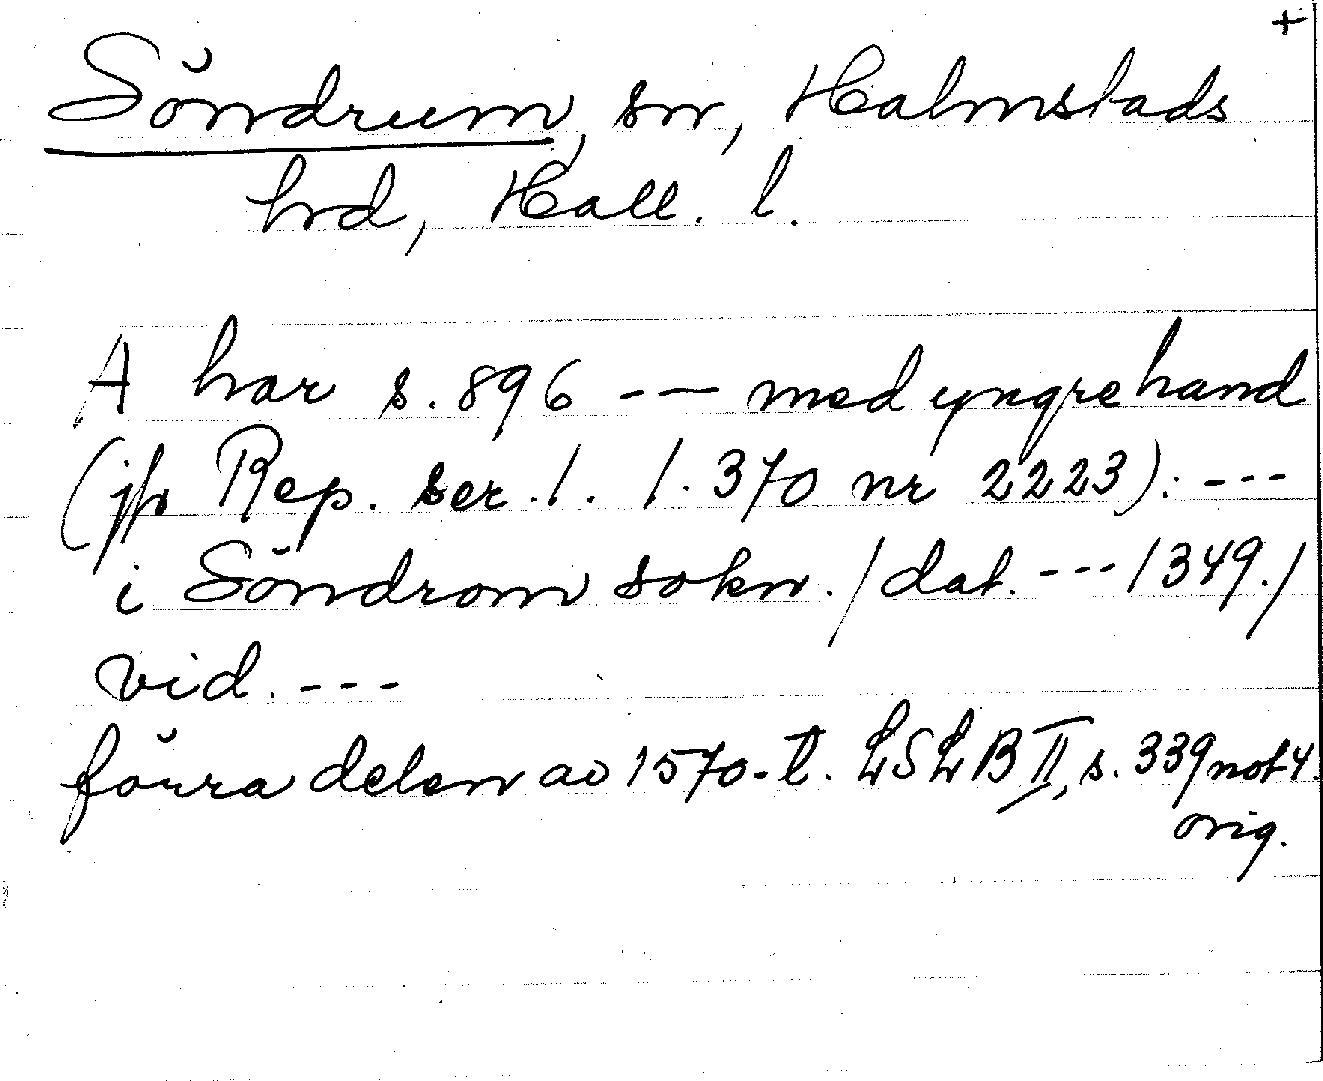 +
Söndrum, sn, Halmstads
hrd, Hall. l.
A har s. 896 --- med yngre hand
(jfr Rep. ser. 1. 1. 370 nr 2223): ---
i Söndrom sokn. / dat. --- 1349. /
vid. ---
förra delen av 1570-t. LSLB II, s. 339 not 4.
orig.